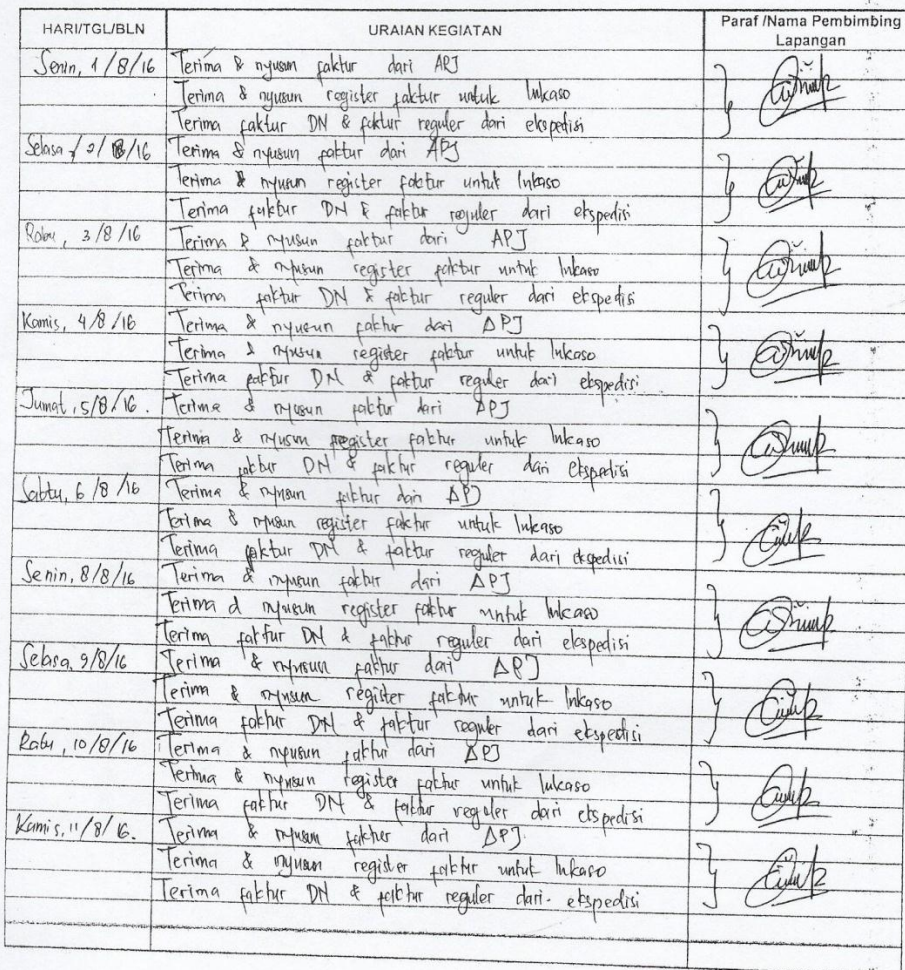 HARI/TGL/BLN URAIAN KEGIATAN Paraf /Nama Pembimbing
Lapangan
Senin, 1/8/16 Terima & nyusun faktur dari APJ
Terima & nyusun register faktur untuk Inkaso
Terima faktur DN & faktur reguler dari ekspedisi
Selasa, 2/8/16 Terima & nyusun faktur dari APJ
Terima & nyusun register faktur untuk Inkaso
Terima faktur DN & faktur reguler dari ekspedisi
Rabu, 3/8/16 Terima & nyusun faktur dari APJ
Terima & nyusun register faktur untuk Inkaso
Terima faktur DN & faktur reguler dari ekspedisi
Kamis, 4/8/16 Terima & nyusun faktur dari APJ
Terima & nyusun register faktur untuk Inkaso
Terima faktur DN & faktur reguler dari ekspedisi
Jumat, 5/8/16. Terima & nyusun faktur dari APJ
Terima & nyusun register faktur untuk Inkaso
Terima faktur DN & faktur reguler dari ekspedisi
Sabtu, 6/8/16 Terima & nyusun faktur dari APJ
Terima & nyusun register faktur untuk Inkaso
Terima faktur DN & faktur reguler dari ekspedisi
Senin, 8/8/16 Terima & nyusun faktur dari APJ
Terima & nyusun register faktur untuk Inkaso
Terima faktur DN & faktur reguler dari ekspedisi
Selasa, 9/8/16 Terima & nyusun faktur dari APJ
Terima & nyusun register faktur untuk Inkaso
Terima faktur DN & faktur reguler dari ekspedisi
Rabu, 10/8/16 Terima & nyusun faktur dari APJ
Terima & nyusun register faktur untuk Inkaso
Terima faktur DN & faktur reguler dari ekspedisi
Kamis, 11/8/16. Terima & nyusun faktur dari APJ.
Terima & nyusun register faktur untuk Inkaso
Terima faktur DN & faktur reguler dari ekspedisi